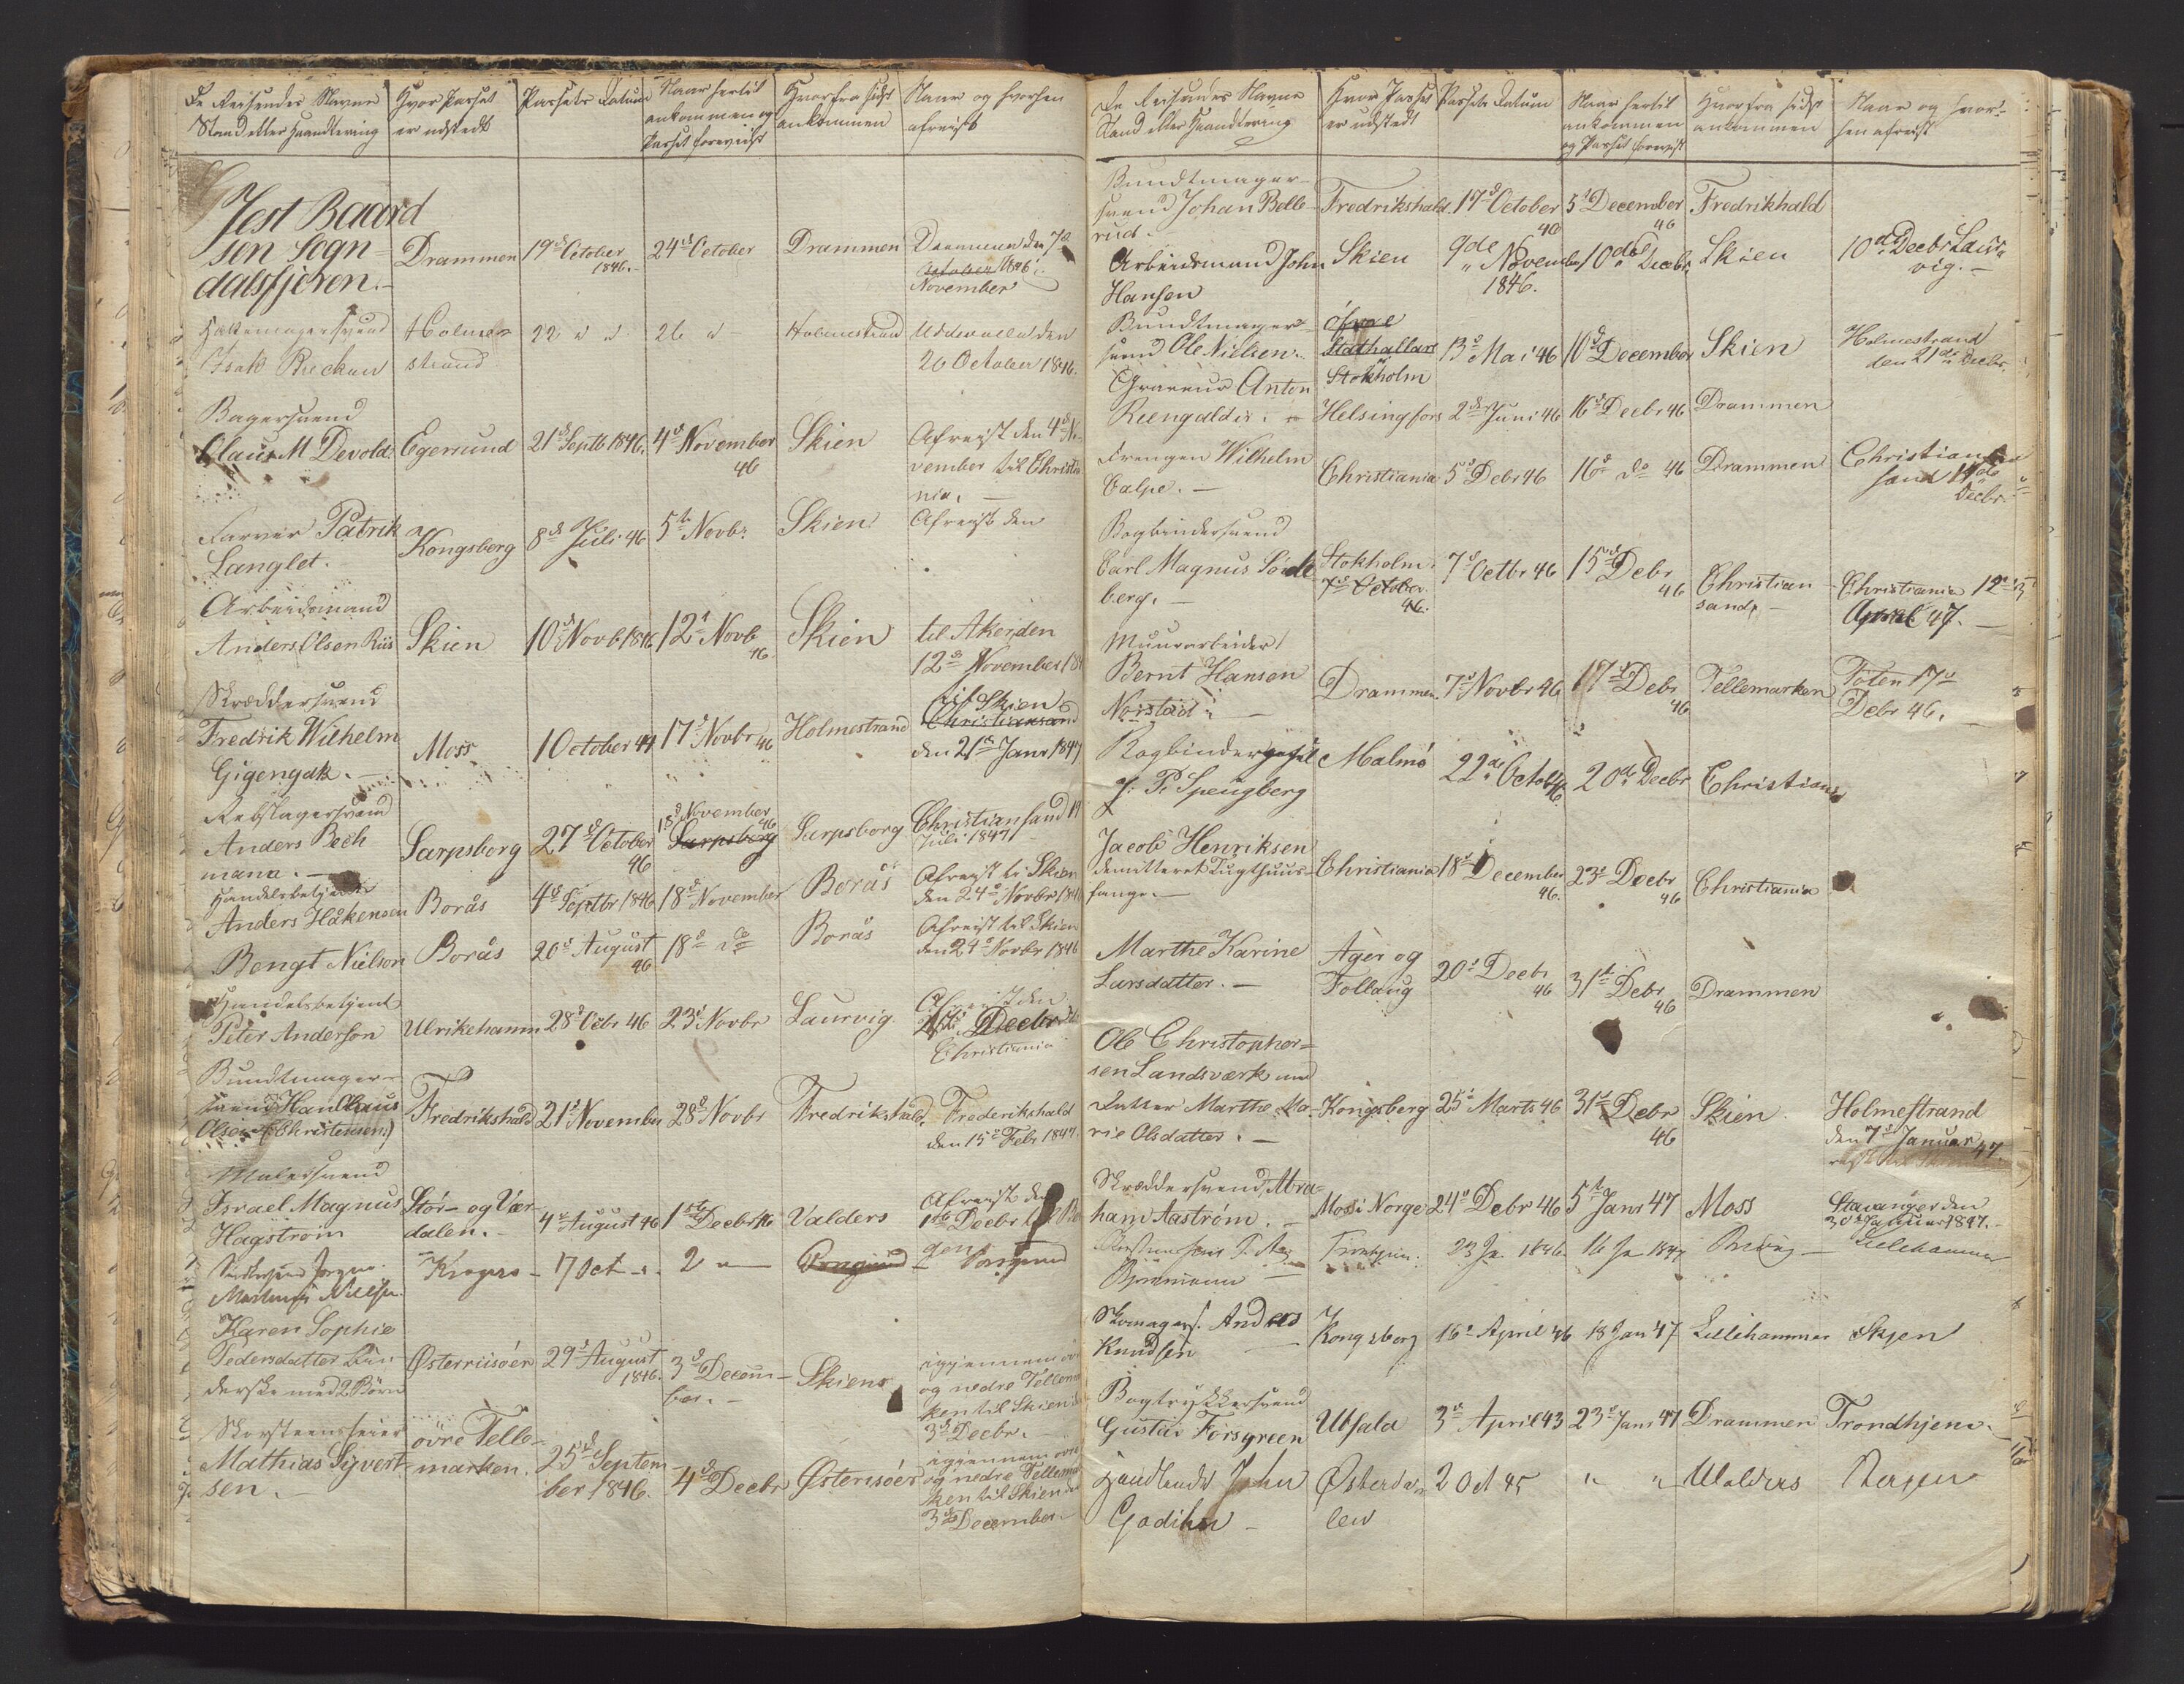 De Reisendes Navne Stand eller Haandtering
Hvor Passet er udstedt
Passets Datum
Naar hertil ankommen og Passet foreviist
Hvorfra sidst ankommen
Naar og hvorhen afreist
Jest Baard
sen Sogn
dalsfjeren.
Drammen
19d October 1846.
24d October
Drammen
November
Isak
Holme-
strand
22
26
Holmestrand
Uddevalla den
20 October 1846.
Bagersvend
Claus M Devold
Egersund
21d Septb 1846.
4d November
46
Skien
Afreist den 4d No-
vember til Christia
nia.
Farver Patrik
Langlet.
Kongsberg
8d Juli 46
5te Novbr
Skien
Afreist den
Arbeidsmand
Anders Olsen Riis
Skien
10d Novb 1846
12t Novb
46
Skien
til
12d November
Skræddersvend
Fredrik Wilhelm
Moss
1 October 44
17d Novbr 46
Holmestrand
til Skien
Christiansand
den 21de Janr 1847
Rebslagersvend
Anders Bech
mann.
Sarpsborg
27d October
46
18d November
46
Sarpsborg
Sarpsborg
Christiansand
Juli 1847
Handelsbetjent
Anders Håkensen
Borås
4d Septbr 1846
18d November
Borås
Afreist til Skien
den 24d Novbr 1846
Bengt Nielson
Borås
20d August
46
18d do
Borås
Afreist til Skien
den 24d Novbr 1846
Handelsbetjent
Peter Anderson
Ulrikehamn
28d Octbr 46
23d Novbr
Laurvig
Afreist den
Decbr
Christiania
Bundtmager-
svend
Olsen (Christensen)
Fredrikshald
21d November
28d Novbr
Fredrikshald
Frederikshald
den 15d Febr 1847.
Malersvend
Israel Magnus
Hagström
Stör- og Vær-
dalen.
4d August 46
1ste Decbr 46
Valders
Afreist den
1ste Decbr
Jørgen
Nielsen.
Kragerø
17 Oct
2
Porsgrund
Karen Sophie
Pedersdatter
med 2 Børn
Østerriisöer
29d August
1846.
3d Decem-
ber.
Skien
igjennem
og nedre Tellemar
ken til Skien
3d Decbr.
Skorsteensfeier
Mathias Syvert-
sen.
övre Telle-
marken.
25d Septem
ber 1846.
4d Decbr
Østerisöer
igjennem övre
og nedre Tellemar
ken til Skien
3de December
De Reisendes Navne Stand eller Haandtering
Hvor Passet er udstedt
Passets Datum
Naar hertil ankommen og Passet foreviist
Hvorfra sidst ankommen
Naar og hvor-
hen afreist
Bundtmager-
svend Johan Belle-
rud.
Fredrikshald.
17d October
46
5te December
46
Fredrikhald
Arbeidsmand John
Hansen
Skien
9de November
1846.
10de Decbr
Skien
10de Decbr Laur-
vig.
Bundtmager-
svend Ole Nielsen.
Stathallars
Stokholm
13d Mai 46
10d December
Skien
Holmestrand
den 21de Decbr.
Graveur Anton
Helsingfors
2d Juni 46
16d Decbr 46
Drammen
Drengen Wilhelm
Calpe.
Christiania
5d Debr 46
16d do 46
Drammen
Christian
sand
Decbr.
Bogbindersvend
Carl Magnus Söde
berg.
Stokholm
7d October
46.
7d Octbr 46
15d Debr
46
Christian
sand
Christiania 12
April 47.
Muurarbeider
Bernt Hansen
Norstad
Drammen
7d Novbr 46
17d Debr
46
Tellemarken
Toten 17d
Debr 46.
Bogbinder
J. P. Spengberg
Malmö
22de October
46
20de Decbr
Christians
Jacob Henriksen
demitteret Tugthuus-
fange.
Christiania
18d December
46.
23d Decbr
46
Christiania
Marthe Karine
Larsdatter.
Ager og
Follaug
20d Decbr
46
31te Debr
46
Drammen
Ole Christopher-
sen Landsværk med
Datter Marthe Ma-
rie Olsdatter.
Kongsberg
25d Marts 46
31te Debr
46
Skien
Holmestrand
den 7d Januar 47.
Skræddersvend Abra-
ham Aaström.
Moss i Norge
24d Debr 46
5te Janr 47
Moss
Stavanger den
30te Januar 1847.
Bjornmann
Trondhjem
23 Ja 1846
16 Ja 1847
Lillehammer
Skomagers. Anders
Knudsen
Kongsberg
16d April 46
18 Jan 47
Lillehammer
Skjen
Bogtrykkersvend
Gustav Forsgreen
Upsala
3d April 43
23d Janr 47
Drammen
Trondhjem.
Handlende John
Østerda-
len
2 Oct 45
Walders
Bergen